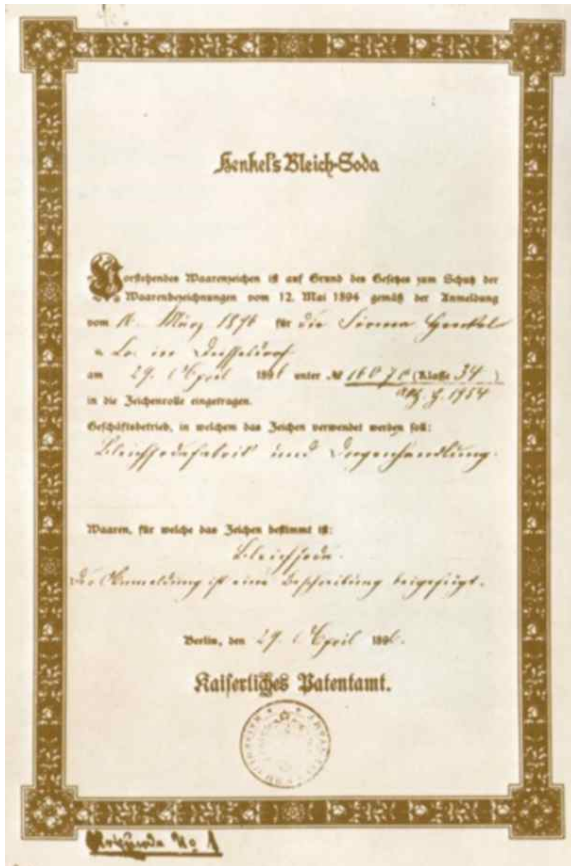 Henkel's Bleich-Soda
Vorstehendes Waarenzeichen ist auf Grund des Gesetzes zum Schutz der
Waarenbezeichnungen vom 12. Mai 1894 gemäß der Anmeldung
vom März 1896 für die Firma Henkel
& Co. in Düsseldorf
am 29. April 1896 unter № 16070 (Klasse 34)
in die Zeichenrolle eingetragen.
Geschäftsbetrieb, in welchem das Zeichen verwendet werden soll:
Bleichsodafabrik und Drogenhandlung.
Waaren, für welche das Zeichen bestimmt ist:
Bleichsoda.
Der Anmeldung ist eine Beschreibung beigefügt.
Berlin, den 29. April 1896.
Kaiserliches Patentamt.
Urkunde No 1